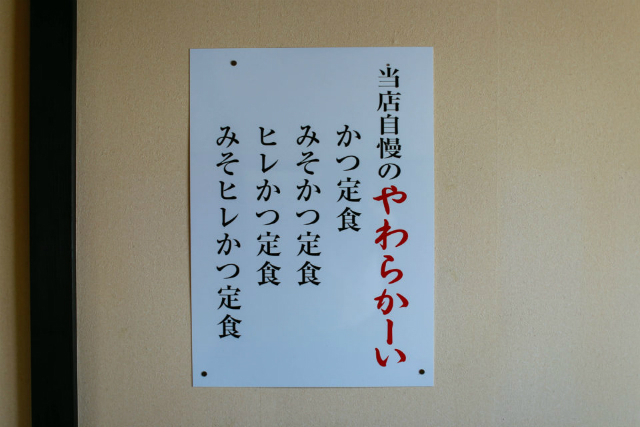 当店自慢のやわらかーい
かつ定食
みそかつ定食
ヒレかつ定食
みそヒレかつ定食